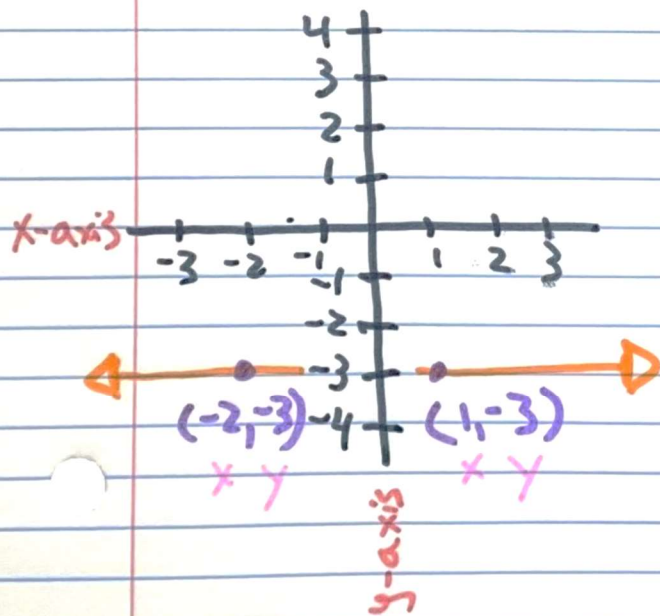 4
3
2
1
x-axis
-3 -2 -1 1 2 3
-1
-2
-3
(-2,-3) -4 (1,-3)
x y x y
y-axis